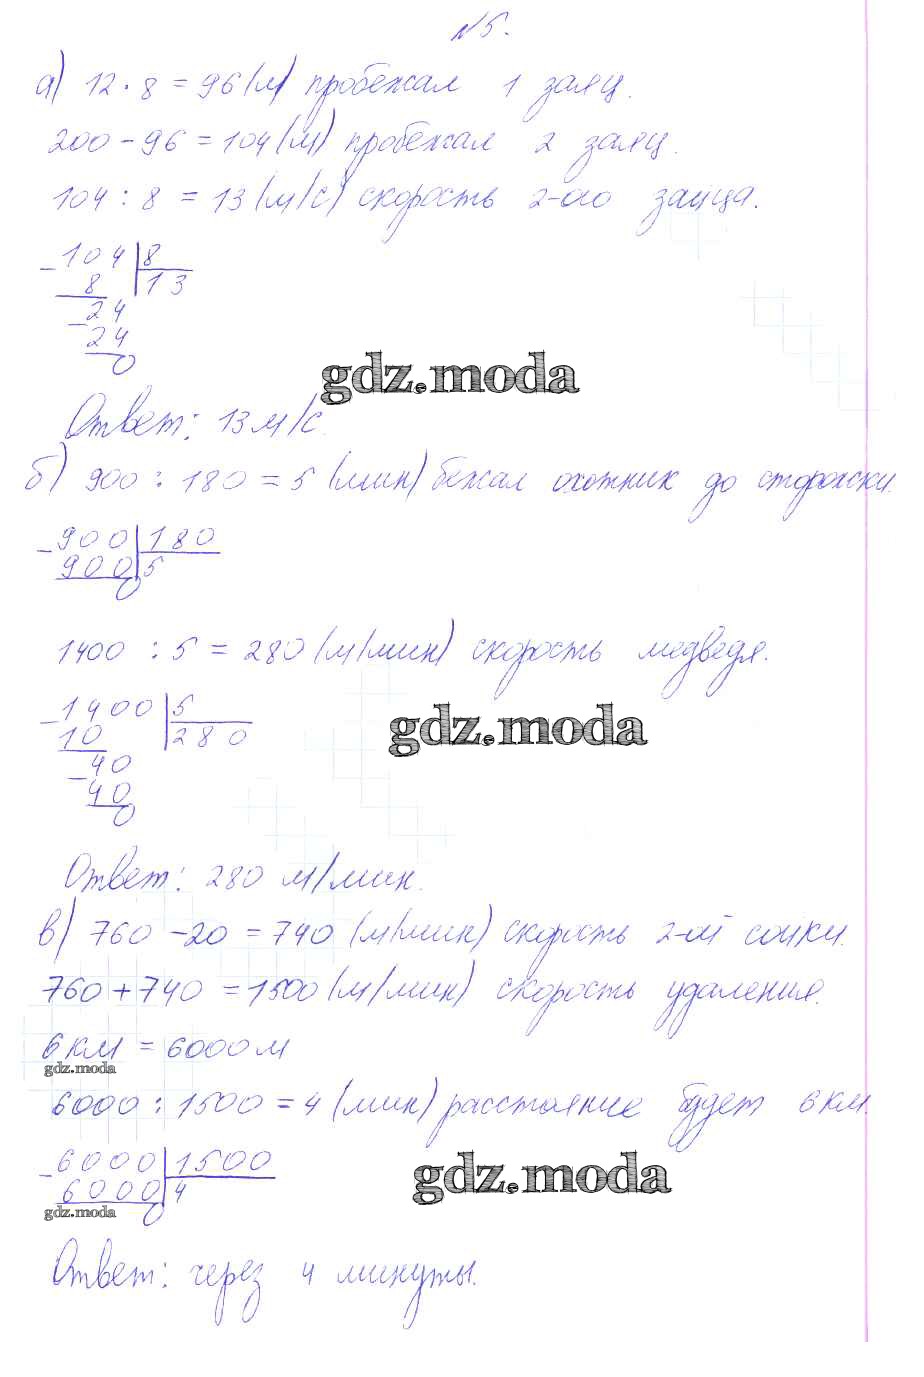 №5.
а) 12 · 8 = 96 (м) пробежал 1 заяц.
200 - 96 = 104 (м) пробежал 2 заяц.
104 : 8 = 13 (м/с) скорость 2-ого зайца.
- 104 | 8
8 13
- 24
24
0
gdz.moda
Ответ: 13 м/с.
б) 900 : 180 = 5 (мин) бежал охотник до сторожки.
- 900 | 180
900 5
0
1400 : 5 = 280 (м/мин) скорость медведя.
- 1400 | 5
10 280
- 40
40
0
gdz.moda
Ответ: 280 м/мин.
в) 760 - 20 = 740 (м/мин) скорость 2-ой сойки.
760 + 740 = 1500 (м/мин) скорость удаления.
6 км = 6000 м
gdz.moda
6000 : 1500 = 4 (мин) расстояние будет 6 км.
- 6000 | 1500
6000 4
0
gdz.moda
gdz.moda
Ответ: через 4 минуты.